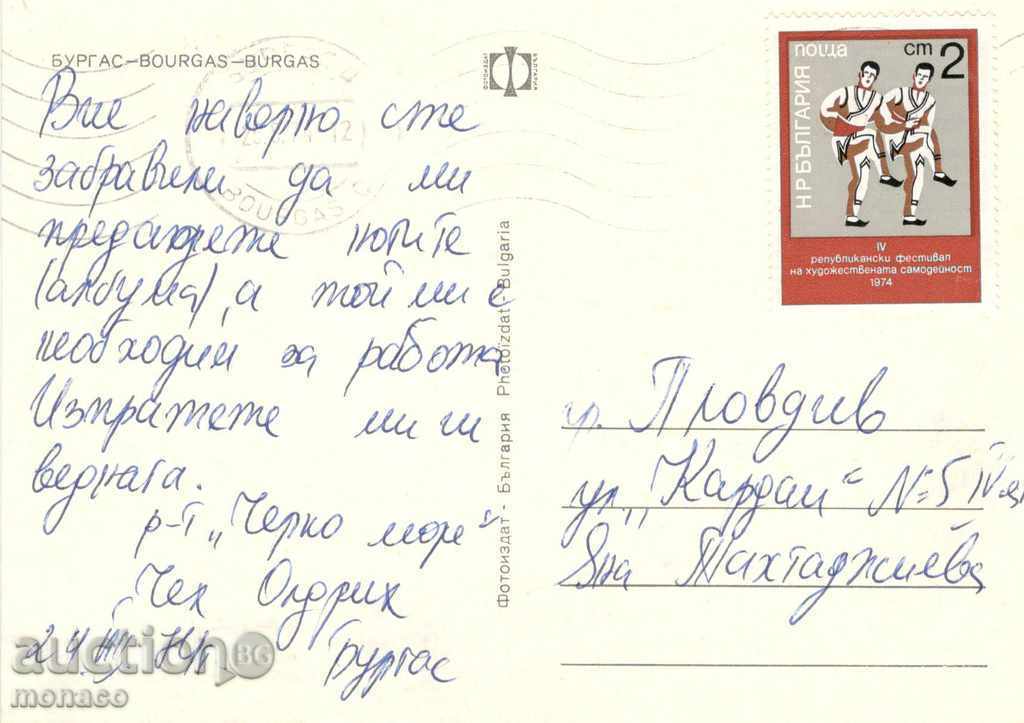 БУРГАС–BOURGAS–BURGAS
ФОТОИЗДАТ БЪЛГАРИЯ
Вие наверно сте
забравили да ми
предадете нотите
(албума), а той ми е
необходим за работа
Изпратете ми ги
веднага.
р-т „Черно море“
Чех Олдрих
24
Бургас
BOURGAS
Фотоиздат - България Photoizdat - Bulgaria
поща ст 2
НР БЪЛГАРИЯ
IV
републикански фестивал
на художествената самодейност
1974
гр. Пловдив
ул. „Кардам“ N=5 IV
Яна Тахтаджиева
auction BG
monaco